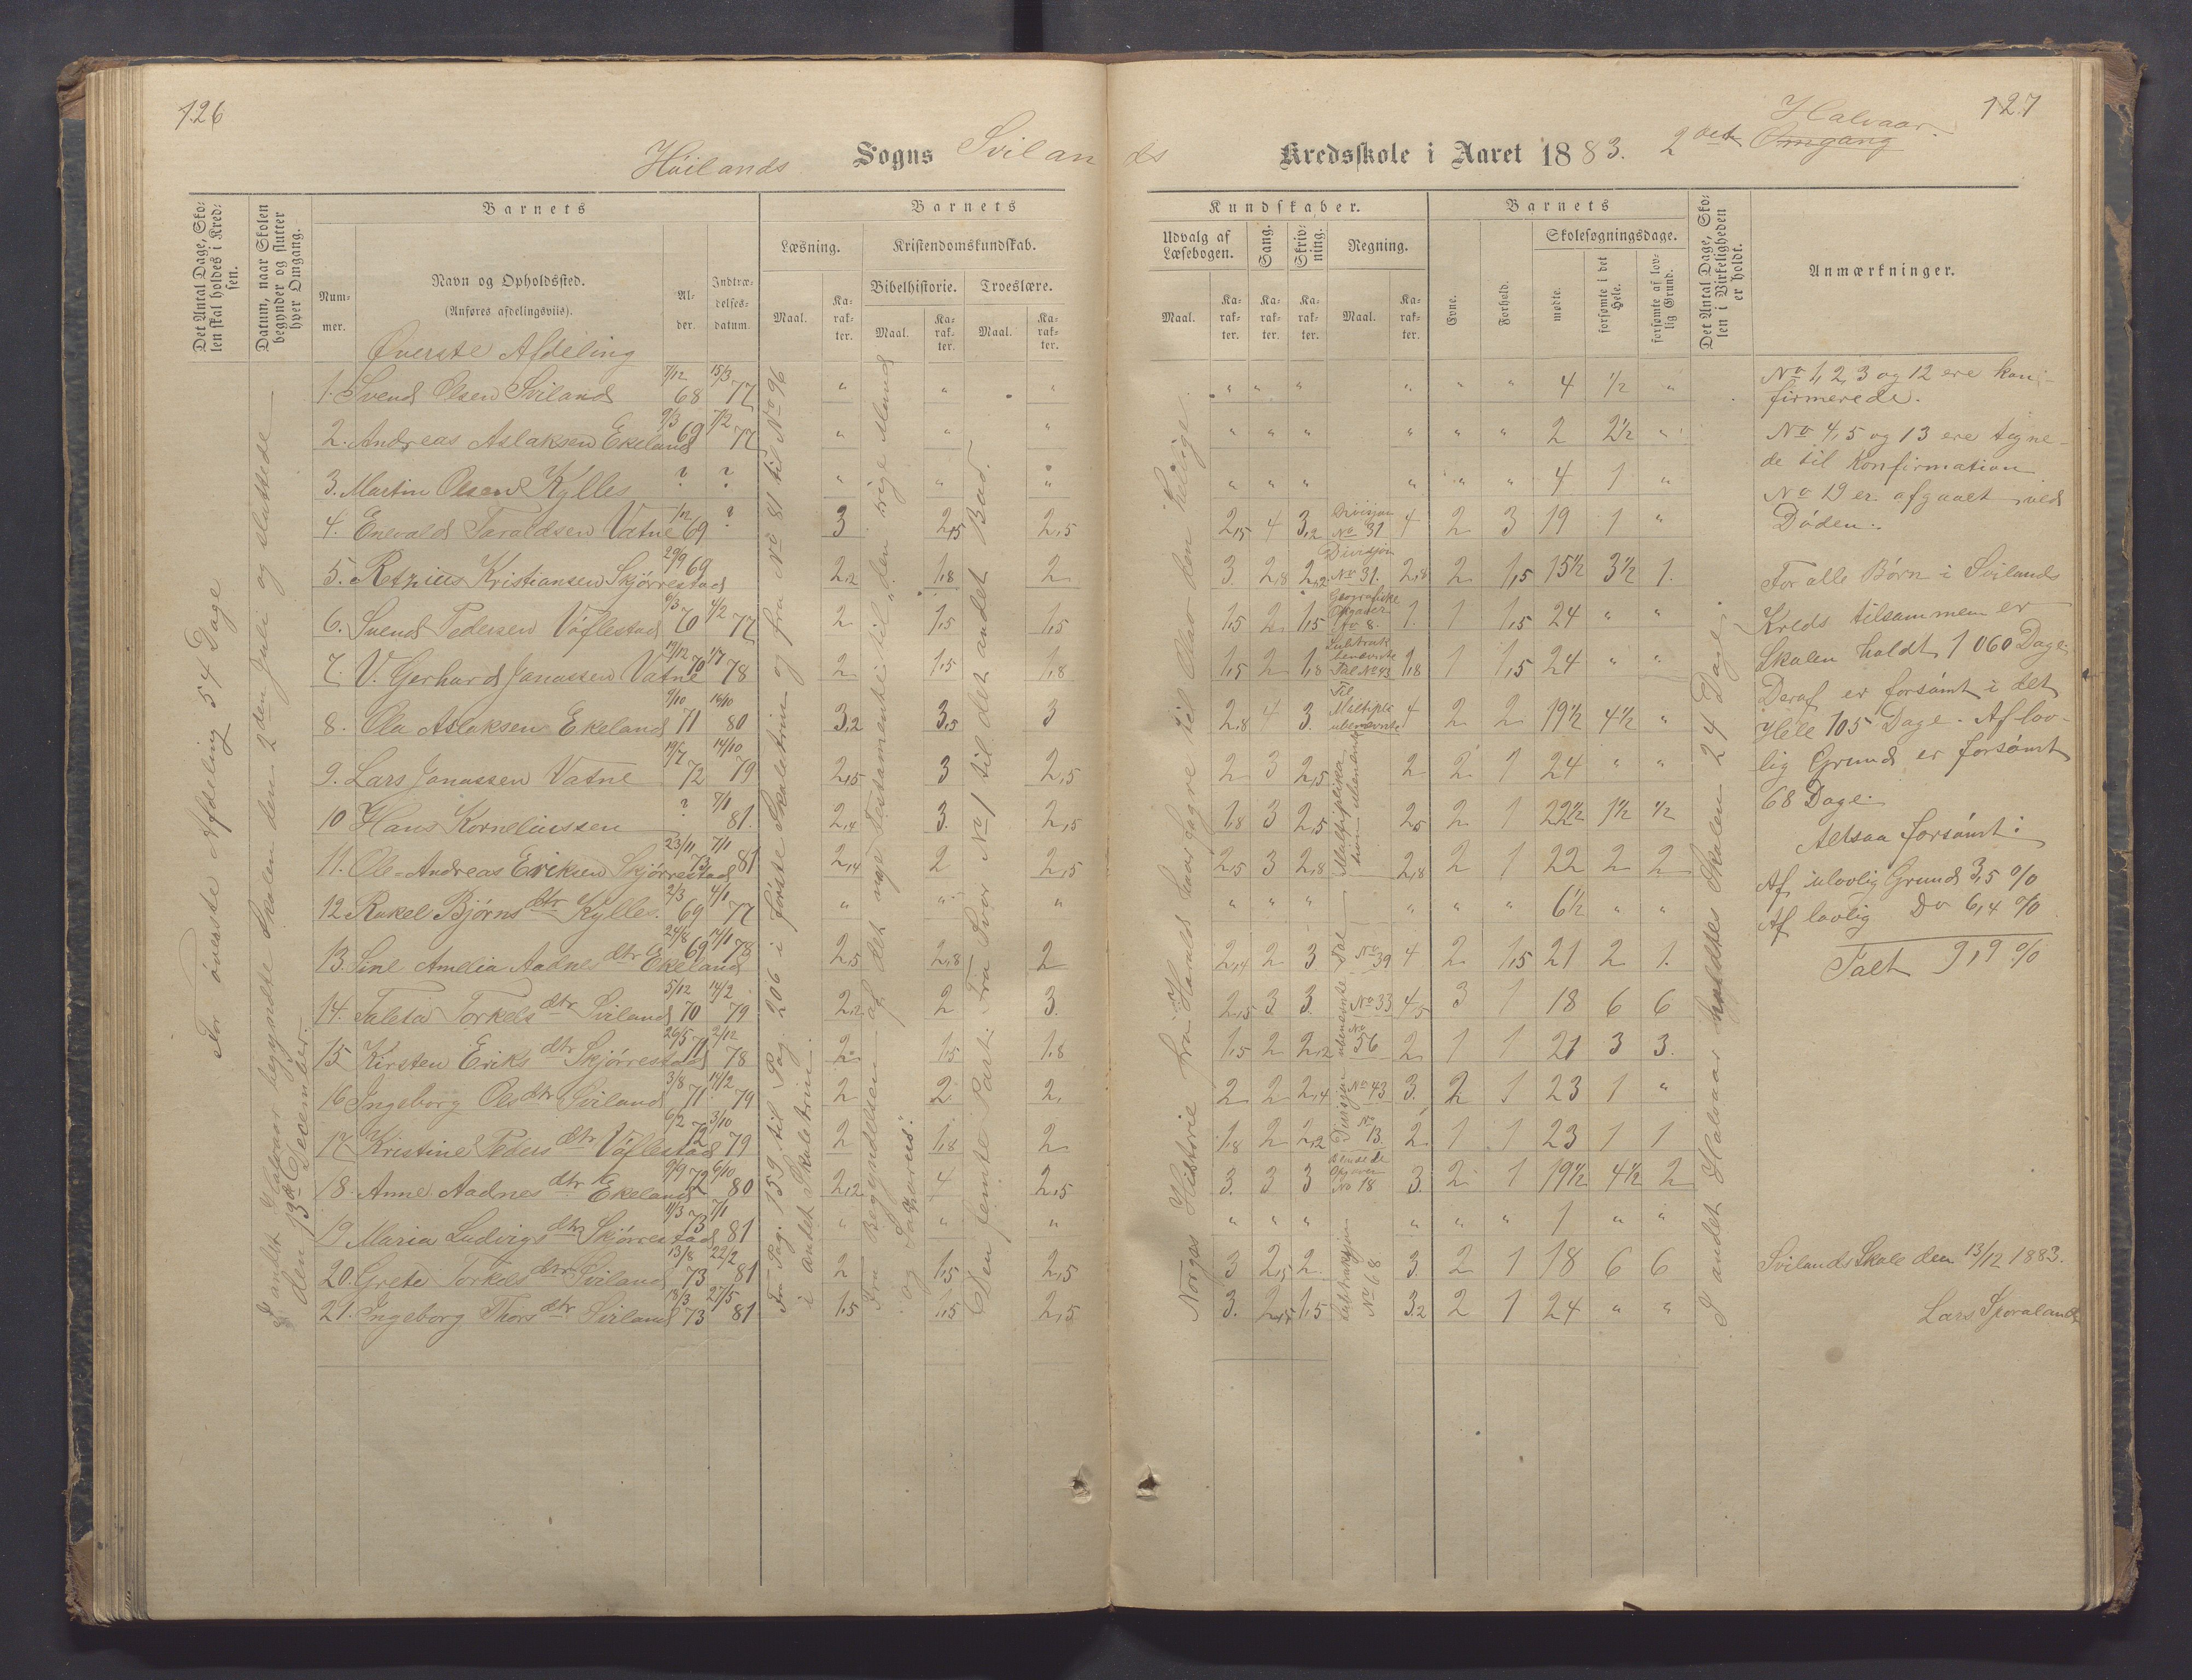 126
Höilands Sogns Svilan
Det Antal Dage, Sko-
len skal holdes i Kred-
sen.
Datum, naar Skolen
begynder og slutter
hver Omgang.
Barnets
Barnets
Num-
mer.
Navn og Opholdssted.
(Anføres afdelingsviis).
Al-
der.
Indtræ-
delses-
datum.
Læsning.
Kristendomskundskab.
Maal.
Ka-
rak-
ter.
Bibelhistorie.
Troeslære.
Maal.
Ka-
rak-
ter.
Maal.
Ka-
rak-
ter.
Øverste Afdeling
For överste Afdeling 54 Dage
I andet Halvaar begyndte Skolen den 2den Juli og sluttede
den 13de December.
Fra Pag. 159 til Pag. 206 i første Skoletrin og fra No 81 til No 96
i andet Skoletrin.
Fra Begyndelsen af det nye Testamente til „den rige Mand
og Lazarus".
Den femte Part: Fra Svar No 1 til det andet Bud.
1. Svend Olsen Sviland 7/12 68 15/3 77 " " "
2. Andreas Aslaksen Ekeland 9/3 69 7/2 77 " " "
3. Martin Olsen Kylles ? ? " " "
4. Enevald Taraldsen Vatne 1/12 69 ? 3 2,15 2,5
5. Retnius Kristiansen Skjörrestad 29/9 69 2,12 1,8 2
6. Svend Pedersen Vöflestad 6/3 70 4/2 77 2 1,5 1,5
7. V. Gerhard Janassen Vatne 19/12 70 1/7 78 2 1,5 1,8
8. Ola Aslaksen Ekeland 9/10 71 16/10 80 3,2 3,5 3
9. Lars Janassen Vatne 19/7 72 14/10 79 2,15 3 2,15
10 Hans Korneliussen ? 7/1 81. 2,4 3. 2,15
11. Ole-Andreas Eriksen Skjörrestad 23/11 73 7/1 81 2,14 2 2,15
12 Rakel Bjørns dtr Kylles. 2/3 69 4/1 77 " " "
13. Sine Amelia Aadnes dtr Ekeland 24/8 69 14/1 78 2,5 2,8 2
14. Taleta Torkels dtr Sviland 5/12 70 14/2 79 2,2 2 3.
15 Kirsten Eriks dtr Skjörrestad 26/5 71 2/12 78 2 1,5 1,8
16 Ingeborg Ols dtr Sviland 3/8 71 14/2 79 2 2 2,
17 Kristine Peders dtr Vöflestad 6/2 72 3/10 79 2 1,8 2
18. Anne Aadnes dtr Ekeland 9/9 72 6/10 80 2,12 4 2,15
19 Maria Ludvigs dtr Skjörrestad 11/3 73 7/1 81 " " "
20. Grete Torkels dtr Sviland 13/8 73 22/2 81 2 1,5 2,5
21. Ingeborg Thors dtr Sviland 18/3 73 27/5 81 1,5 1,5 2,5
127
ds Kredsskole i Aaret 1883. 2det Omgang Halvaar.
Kundskaber.
Barnets
Udvalg af
Læsebogen.
Sang.
Skriv-
ning.
Regning.
Maal.
Ka-
rak-
ter.
Ka-
rak-
ter.
Ka-
rak-
ter.
Maal.
Ka-
rak-
ter.
Evne.
Forhold.
Skolesøgningsdage.
mødte.
forsømte i det
Hele.
forsømte af lov-
lig Grund.
Det Antal Dage, Sko-
len i Virkeligheden
er holdt.
Anmærkninger.
Norges Historie fra Harald Haarfagre til Olav den hellige.
I andet Halvaar holdtes Skolen 24 Dage.
" " " " " " 4 1/2 "
" " " " " " 2 2 1/2 "
" " " " " " 4 1 "
2,15 4 3,2 Divisjon No 31 4 2 3 19 1 "
3. 2,8 2,2 Divisjon No 31. 2,8 2 1,5 15 1/2 3 1/2 1.
1,5 2 1,5 Geografiske Opgaver No 8. 1. 1 1,5 24 " "
1,5 2 1,8 Subtrak. benevnte Tal No 43 1,8 1 1,5 24 " "
2,8 4 3. Til Multipli. ubenevnte 4 2 2 19 1/2 4 1/2 "
2 3 2,15 2 2 1 24 " "
1,8 3 2,5 2,5 2 1 22 1/2 1 1/2 1/2
2,5 3 2,8 2,8 2 1 22 2 2
" " " " " " 6 1/2 " "
2,4 2 3 No 39 4 2 1,5 21 2 1.
2,15 3 3. No 33 4,5 3 1 18 6 6
1,5 2 2,2 No 56 2 1 1 21 3 3.
2 2 2,4 No 43 3. 2 1 23 1 "
1,8 2 2,2 No 13. 2 1 1 23 1 1
3. 3 3 Opgaver No 18 3. 2 1 19 1/2 4 1/2 2
" " " " " " 1 " "
3 2,5 2 3. 2 1 18 6 6
3. 2,15 1,5 3,2 2 1 24 " "
Multiplika
tion ubenevnte
Divisjon ubenevnte Tal
Subtraksjon
No 68
No 1, 2, 3 og 12 ere kon-
firmerede.
No 4, 5 og 13 ere tegne-
de til Konfirmation
No 19 er afgaaet ved
Döden.
For alle Børn i Svilands
Kreds tilsammen er
Skolen holdt 1060 Dage.
Deraf er forsömt i det
Hele 105 Dage. Af lov-
lig Grund er forsömt
68 Dage.
Altsaa forsömt:
Af ulovlig Grund 3,5 %
Af lovlig Do 6,4 %
Talt 9,9 %
Svilands Skole den 13/12 1883.
Lars